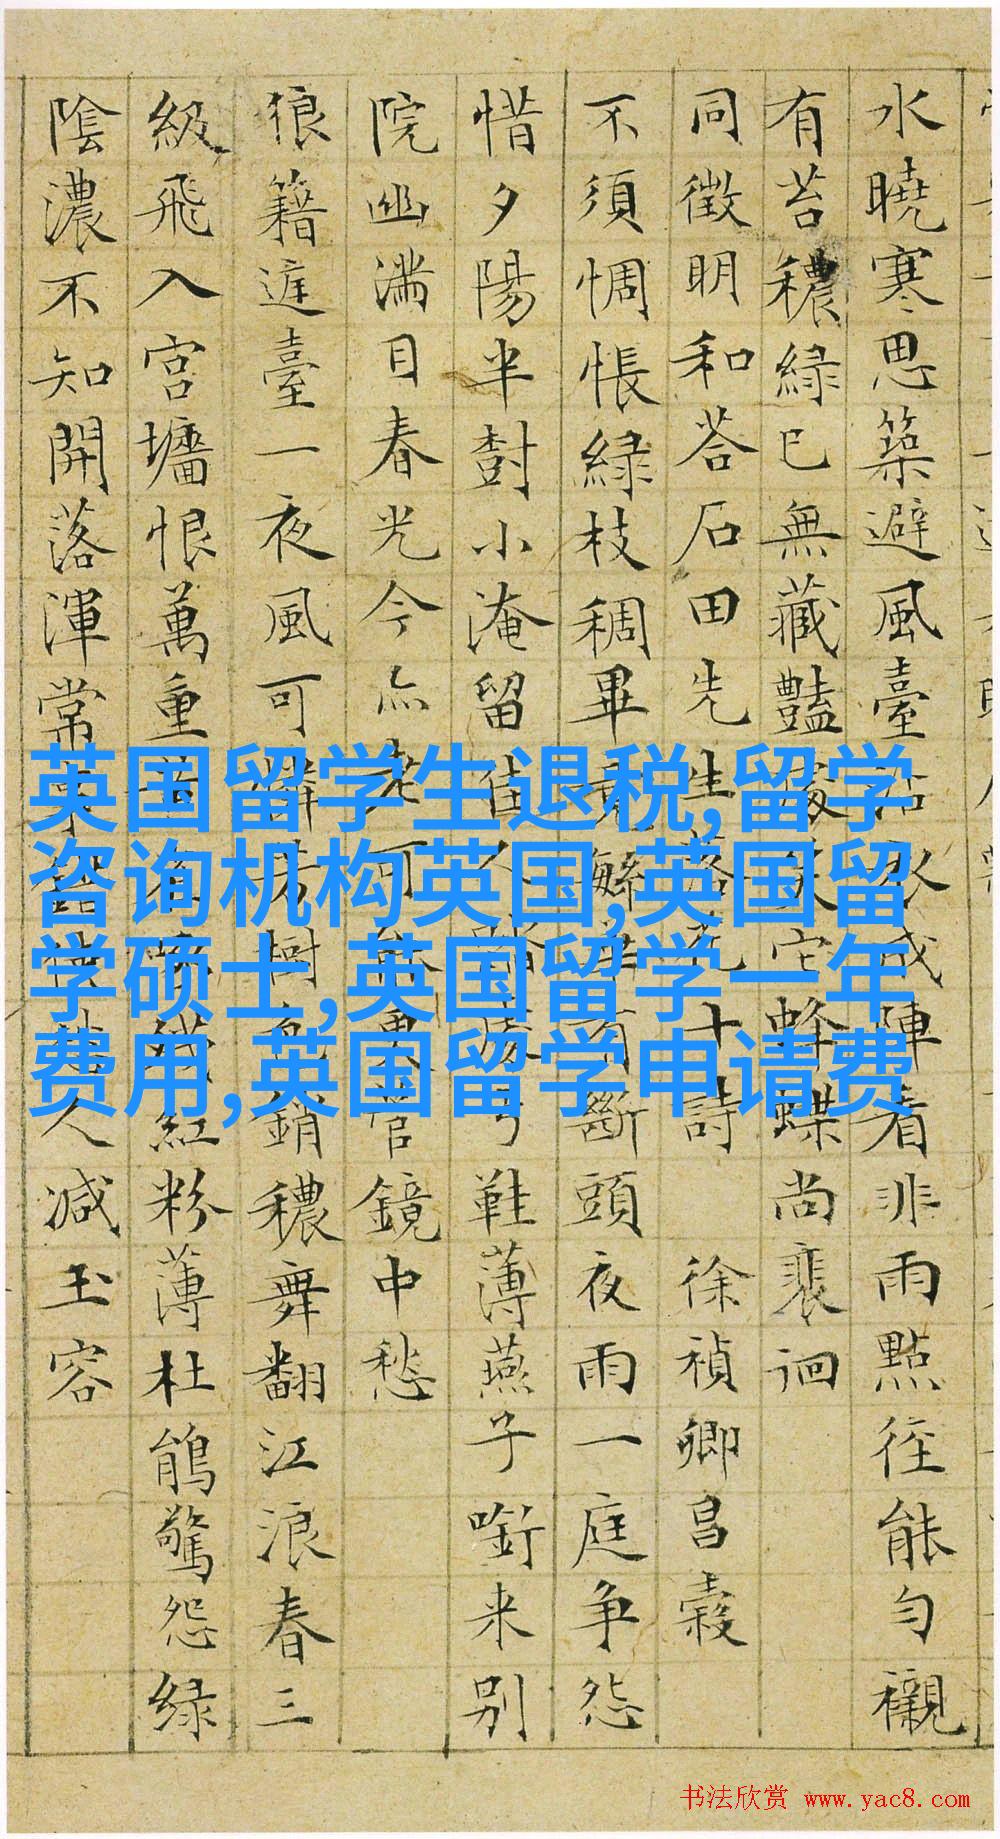 水曉寒思築避風臺成陣看非雨點徑能勻襯
有苔穠緑已無藏豔蜂蝶尚裴徊
同徵明和荅石田先生落花十詩 徐禎卿昌穀
不須惆悵緑枝稠畢有斷頭夜雨一庭争怨
惜夕陽半樹小淹留佳弓鞋薄燕子啣来别
院幽滿目春光今亦老可管鏡中愁
狼籍遮臺一夜風可憐芳樹銷穠舞翻江浪春三
級飛入宫墻恨萬重紅粉薄杜鵑驚怨緑
陰濃不知開落渾常事人减玉容
英国留学生退税,留学
咨询机构英国,英国留
学硕士,英国留学一年
费用,英国留学申请费
书法欣赏 www.yac8.com